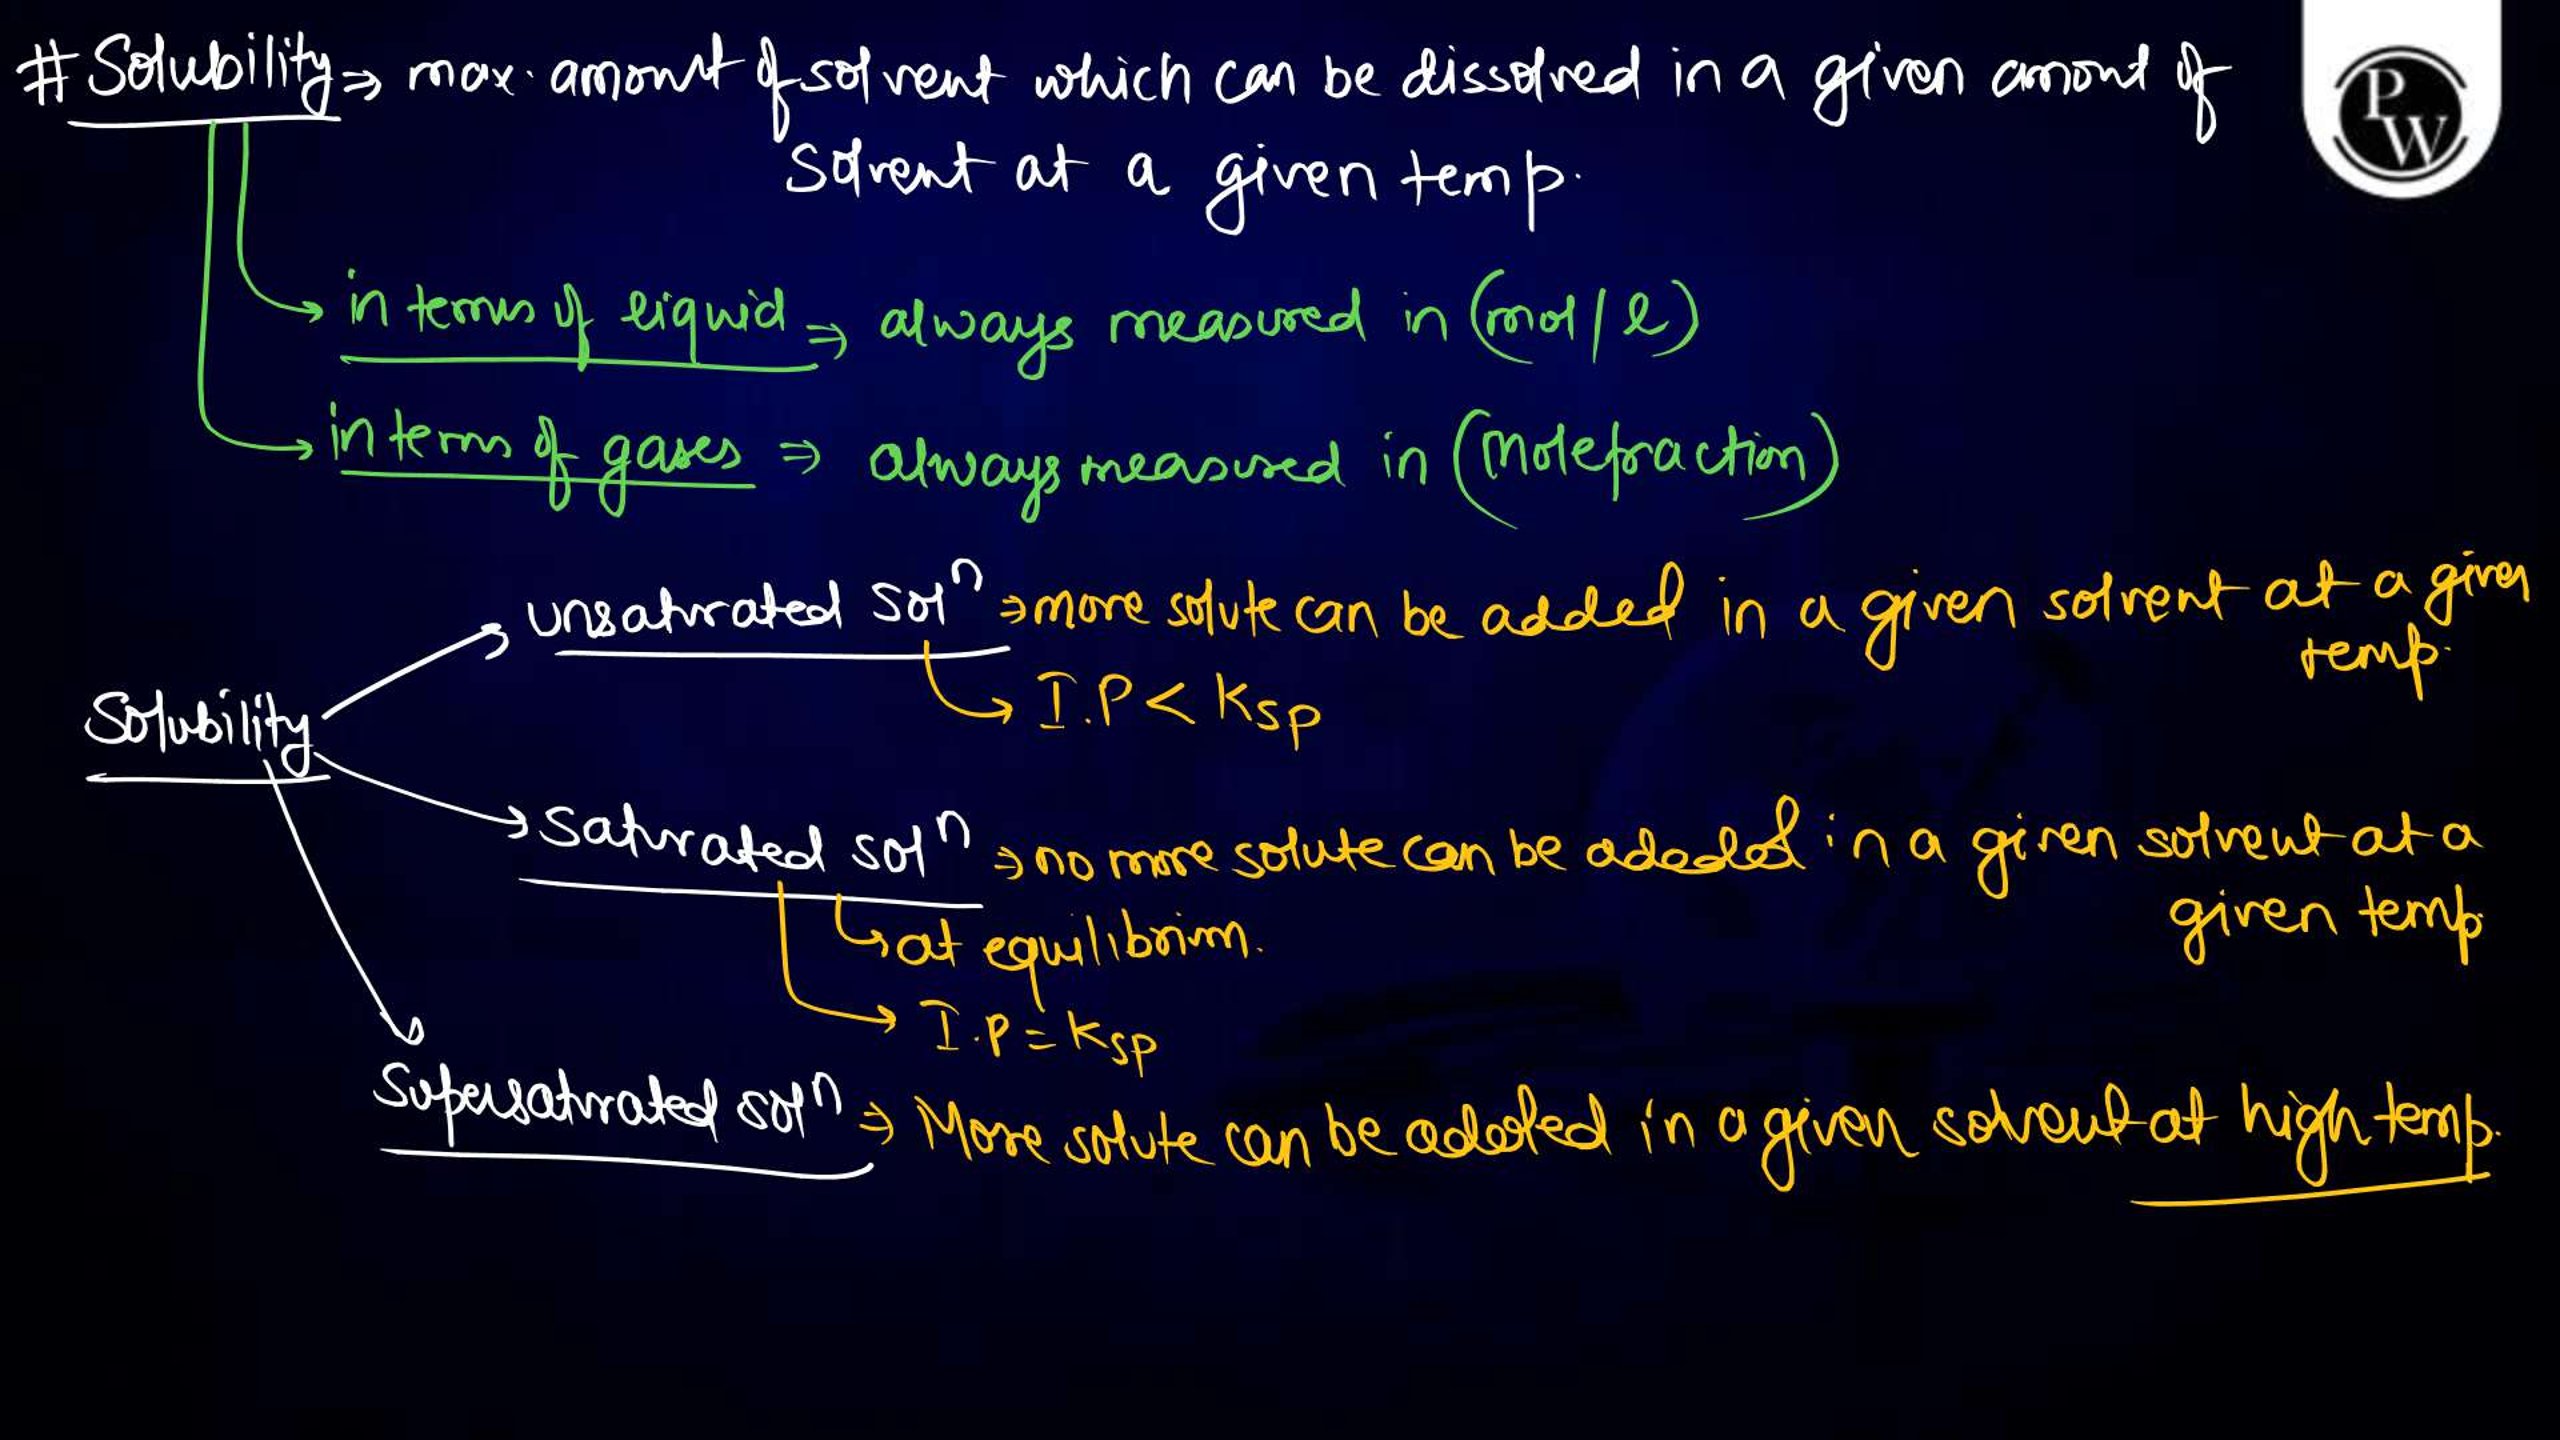 # Solubility ⇒ max. amount of solvent which can be dissolved in a given amont of
Solvent at a given temp.
in terms of liquid ⇒ always measured in (mol/l)
in terms of gases ⇒ always measured in (Molefraction)
unsaturated solⁿ ⇒ more solute can be added in a given solvent at a given
temp.
I.P < Ksp
Solubility
Saturated solⁿ ⇒ no more solute can be added in a given solvent at a
given temp
at equilibrium.
I.P = Ksp
Supersaturated solⁿ ⇒ More solute can be added in a given solvent at high temp.
PW